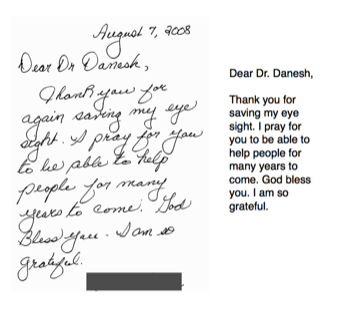 August 7, 2008
Dear Dr Danesh,
Thank you for
again saving my eye
sight. I pray for you
to be able to help
people for many
years to come. God
Bless you. I am so
grateful.
Dear Dr. Danesh,
Thank you for
saving my eye
sight. I pray for
you to be able to
help people for
many years to
come. God bless
you. I am so
grateful.